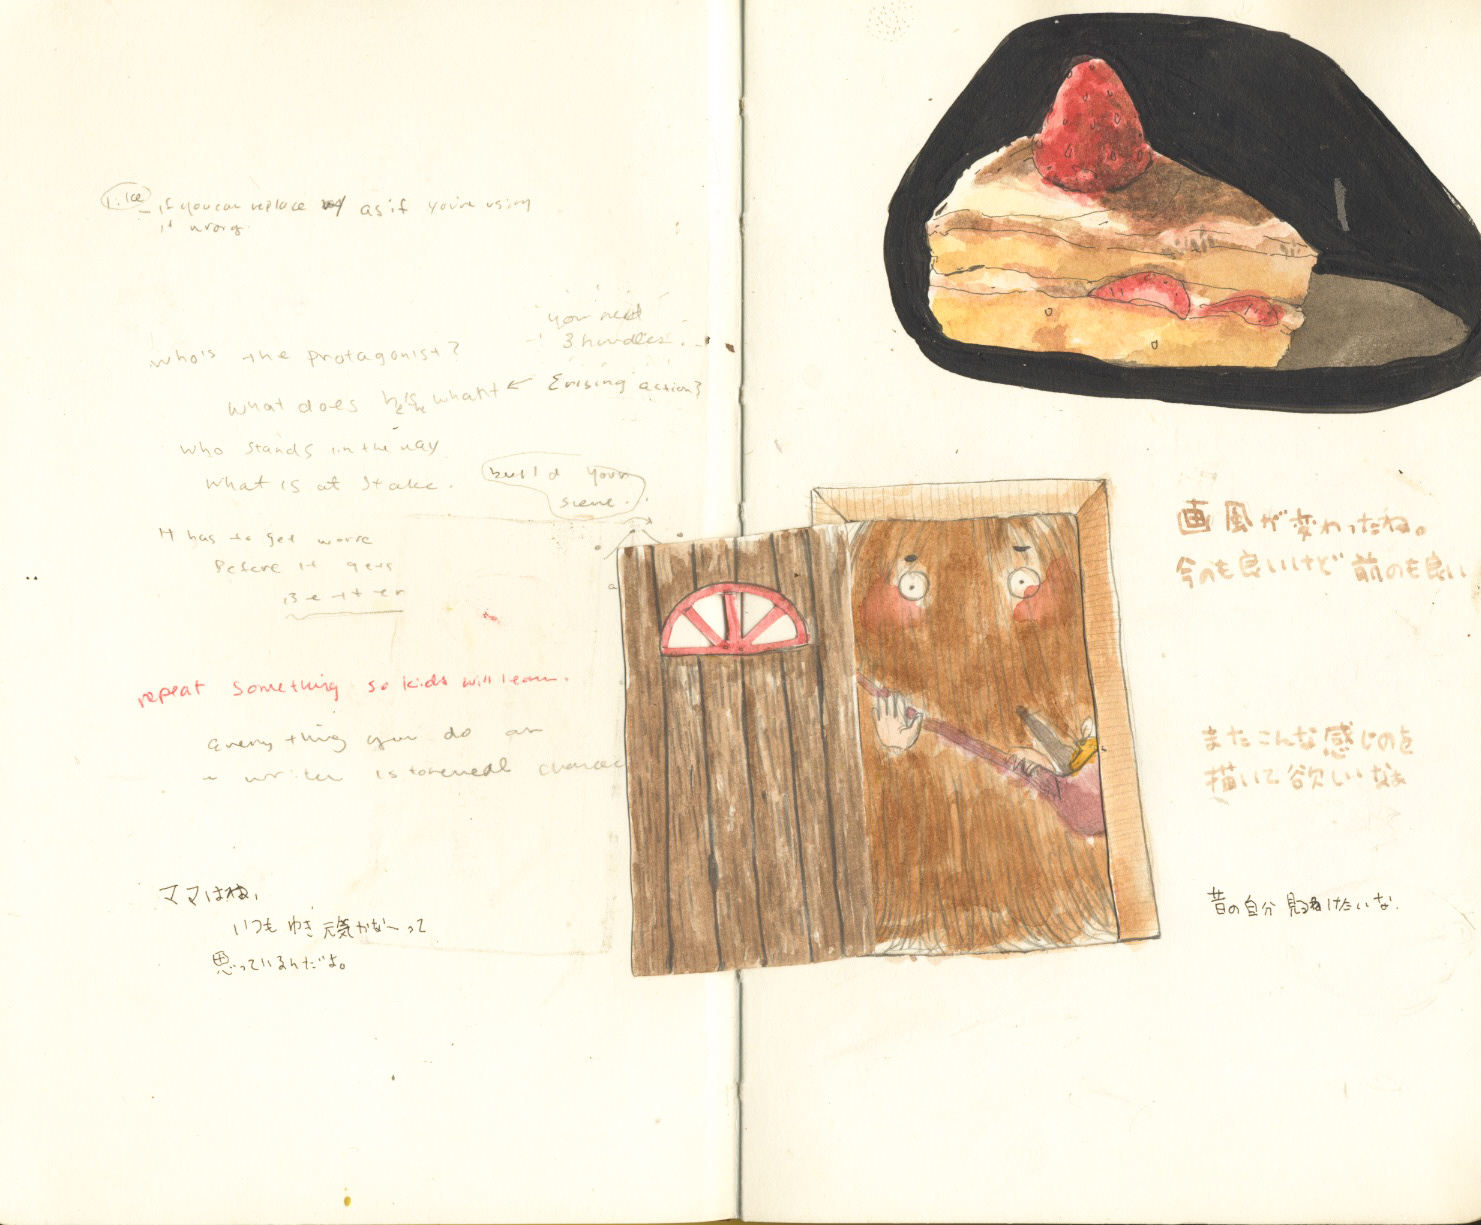 Like
- if you can replace w/ as if you're using
it wrong.
you need
3 hurdles.
who's the protagonist?
what does he want ← rising action?
who stands in the way
what is at stake.
build your
scene.
It has to get worse
before it gets
Better
repeat something so kids will learn.
everything you do as
a writer is to reveal charac
ママはね、
いつもゆき元気かなーって
思っているんだよ。
画風が変わったね。
今のも良いけど前のも良い
またこんな感じのを
描いて欲しいなぁ
昔の自分